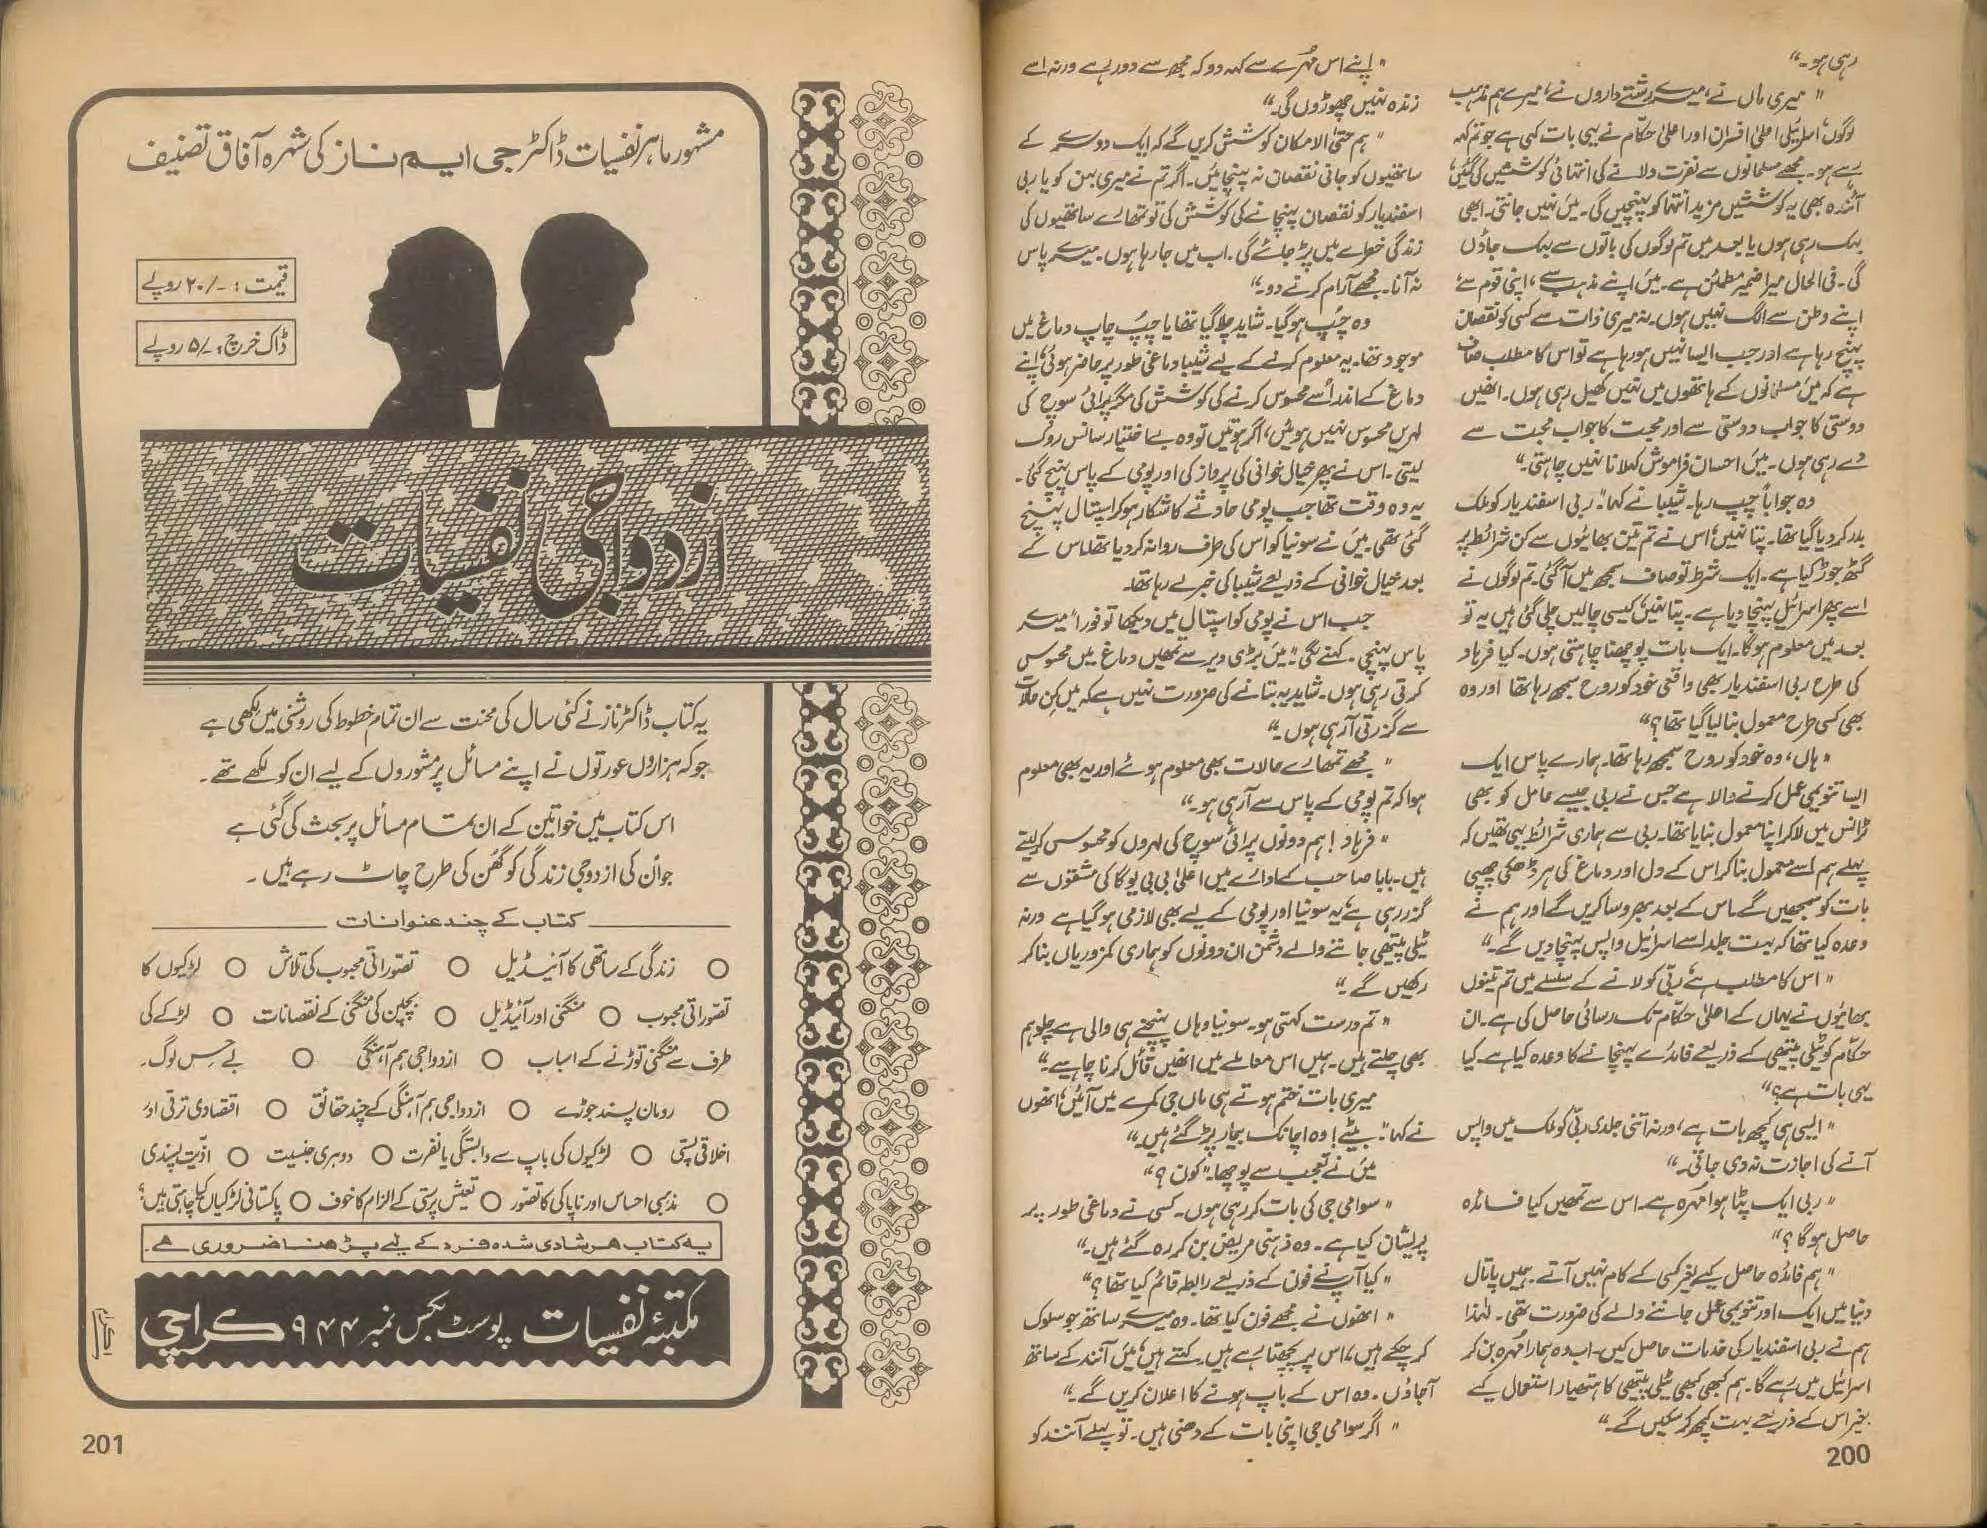 رہی ہو۔“
” میری ماں نے، میرے رشتے داروں نے، میرے ہم مذہب
لوگوں، اسرائیلی اعلیٰ افسران اور اعلیٰ حکام نے یہی بات کہی ہے جو تم کہہ
رہے ہو۔ مجھے مسلمانوں سے نفرت دلانے کی انتہائی کوششیں کی گئیں،
آئندہ بھی یہ کوششیں مزید انتہا کو پہنچیں گی۔ میں نہیں جانتی۔ ابھی
بہک رہی ہوں یا بعد میں تم لوگوں کی باتوں سے بہک جاؤں
گی۔ فی الحال میرا ضمیر مطمئن ہے۔ میں اپنے مذہب سے، اپنی قوم سے،
اپنے وطن سے الگ نہیں ہوں۔ نہ میری ذات سے کسی کو نقصان
پہنچ رہا ہے اور جب ایسا نہیں ہو رہا ہے تو اس کا مطلب صاف
ہے کہ میں مسلمانوں کے ہاتھوں میں نہیں کھیل رہی ہوں۔ انھیں
دوستی کا جواب دوستی سے اور محبت کا جواب محبت سے
دے رہی ہوں۔ میں احسان فراموش کہلانا نہیں چاہتی۔“
وہ جواباً چپ رہا۔ شیبا نے کہا ”ربی اسفند یار کو ملک
بدر کر دیا گیا تھا۔ پتا نہیں، اس نے تم تین بھائیوں سے کن شرائط پر
گٹھ جوڑ کیا ہے۔ ایک شرط تو صاف سمجھ میں آ گئی۔ تم لوگوں نے
اسے پھر اسرائیل پہنچا دیا ہے۔ پتا نہیں، کیسی چالیں چلی گئی ہیں یہ تو
بعد میں معلوم ہوگا۔ ایک بات پوچھنا چاہتی ہوں۔ کیا فرہاد
کی طرح ربی اسفند یار بھی واقعی خود کو روح سمجھ رہا تھا اور وہ
بھی کسی طرح معمول بنا لیا گیا تھا؟“
” ہاں، وہ خود کو روح سمجھ رہا تھا۔ ہمارے پاس ایک
ایسا تنویمی عمل کرنے والا ہے جس نے ربی جیسے عامل کو بھی
ٹرانس میں لا کر اپنا معمول بنایا تھا۔ ربی سے ہماری شرائط یہی تھیں کہ
پہلے ہم اسے معمول بنا کر اس کے دل اور دماغ کی ہر ڈھکی چھپی
بات کو سمجھیں گے۔ اس کے بعد بھروسا کریں گے اور ہم نے
وعدہ کیا تھا کہ بہت جلد اسے اسرائیل واپس پہنچا دیں گے۔“
” اس کا مطلب ہے، ربی کو لانے کے سلسلے میں تم تینوں
بھائیوں نے یہاں کے اعلیٰ حکام تک رسائی حاصل کی ہے۔ ان
حکام کو ٹیلی پیتھی کے ذریعے فائدے پہنچانے کا وعدہ کیا ہے۔ کیا
یہی بات ہے؟“
” ایسی ہی کچھ بات ہے، ورنہ اتنی جلدی ربی کو ملک میں واپس
آنے کی اجازت نہ دی جاتی۔“
” ربی ایک پٹا ہوا مہرہ ہے۔ اس سے تمھیں کیا فائدہ
حاصل ہوگا؟“
” ہم فائدہ حاصل کیے بغیر کسی کے کام نہیں آتے۔ ہمیں پاتال
دنیا میں ایک اور تنویمی عمل جاننے والے کی ضرورت تھی۔ لہٰذا
ہم نے ربی اسفند یار کی خدمات حاصل کیں۔ اب وہ ہمارا مہرہ بن کر
اسرائیل میں رہے گا۔ ہم کبھی کبھی ٹیلی پیتھی کا ہتھیار استعمال کیے
بغیر اس کے ذریعے بہت کچھ کر سکیں گے۔“
200
” اپنے اس مہرے سے کہہ دو کہ مجھ سے دور رہے ورنہ اسے
زندہ نہیں چھوڑوں گی۔“
” ہم حتی الامکان کوشش کریں گے کہ ایک دوسرے کے
ساتھیوں کو جانی نقصان نہ پہنچائیں۔ اگر تم نے میری بہن کو یا ربی
اسفند یار کو نقصان پہنچانے کی کوشش کی تو تمھارے ساتھیوں کی
زندگی خطرے میں پڑ جائے گی۔ اب میں جا رہا ہوں۔ میرے پاس
نہ آنا۔ مجھے آرام کرنے دو۔“
وہ چپ ہو گیا۔ شاید چلا گیا تھا یا چپ چاپ دماغ میں
موجود تھا۔ یہ معلوم کرنے کے لیے شیبا دماغی طور پر حاضر ہوئی، اپنے
دماغ کے اندر اسے محسوس کرنے کی کوشش کی مگر پرائی سوچ کی
لہریں محسوس نہیں ہوئیں، اگر ہوتیں تو وہ بے اختیار سانس روک
لیتی۔ اس نے پھر خیال خوانی کی پرواز کی اور پومی کے پاس پہنچ گئی۔
یہ وہ وقت تھا جب پومی حادثے کا شکار ہو کر اسپتال پہنچ
گئی تھی۔ میں نے سونیا کو اس کی طرف روانہ کر دیا تھا۔ اس کے
بعد خیال خوانی کے ذریعے شیبا کی خبر لے رہا تھا۔
جب اس نے پومی کو اسپتال میں دیکھا تو فوراً میرے
پاس پہنچی۔ کہنے لگی ”میں بڑی دیر سے تمھیں دماغ میں محسوس
کرتی رہی ہوں۔ شاید یہ بتانے کی ضرورت نہیں ہے کہ میں کن حالات
سے گزرتی آ رہی ہوں۔“
” مجھے تمھارے حالات بھی معلوم ہوئے اور یہ بھی معلوم
ہوا کہ تم پومی کے پاس سے آ رہی ہو۔“
” فرہاد! ہم دونوں پرائی سوچ کی لہروں کو محسوس کر لیتے
ہیں۔ بابا صاحب کے ادارے میں اعلیٰ بی بی یوگا کی مشقوں سے
گزر رہی ہے، یہ سونیا اور پومی کے لیے بھی لازمی ہو گیا ہے ورنہ
ٹیلی پیتھی جاننے والے دشمن ان دونوں کو ہماری کمزوریاں بنا کر
رکھیں گے۔“
” تم درست کہتی ہو۔ سونیا وہاں پہنچنے ہی والی ہے چلو ہم
بھی چلتے ہیں۔ ہمیں اس معاملے میں انھیں قائل کرنا چاہیے۔“
میری بات ختم ہوتے ہی ماں جی کمرے میں آئیں، انھوں
نے کہا ”بیٹے! وہ اچانک بیمار پڑ گئے ہیں۔“
میں نے تعجب سے پوچھا۔ ”کون؟“
” سوامی جی کی بات کر رہی ہوں۔ کسی نے دماغی طور پر
پریشان کیا ہے۔ وہ ذہنی مریض بن کر رہ گئے ہیں۔“
” کیا آپ نے فون کے ذریعے رابطہ قائم کیا تھا؟“
” انھوں نے مجھے فون کیا تھا۔ وہ میرے ساتھ جو سلوک
کر چکے ہیں، اس پر پچھتا رہے ہیں۔ کہتے ہیں، میں آنند کے ساتھ
آ جاؤں۔ وہ اس کے باپ ہونے کا اعلان کریں گے۔“
” اگر سوامی جی اپنی بات کے دھنی ہیں۔ تو پہلے آنند کو
مشہور ماہر نفسیات ڈاکٹر جی ایم ناز کی شہرہ آفاق تصنیف
قیمت : -/۲۰ روپے
ڈاک خرچ : -/۵ روپے
ازدواجی نفسیات
یہ کتاب ڈاکٹر ناز نے کئی سال کی محنت سے ان تمام خطوط کی روشنی میں لکھی ہے
جو کہ ہزاروں عورتوں نے اپنے مسائل پر مشوروں کے لیے ان کو لکھے تھے۔
اس کتاب میں خواتین کے ان تمام مسائل پر بحث کی گئی ہے
جو ان کی ازدواجی زندگی کو گھن کی طرح چاٹ رہے ہیں۔
کتاب کے چند عنوانات
○ زندگی کے ساتھی کا آئیڈیل ○ تصوراتی محبوب کی تلاش ○ لڑکیوں کا
تصوراتی محبوب ○ منگنی اور آئیڈیل ○ بچپن کی منگنی کے نقصانات ○ لڑکے کی
طرف سے منگنی توڑنے کے اسباب ○ ازدواجی ہم آہنگی ○ بے حس لوگ۔
○ رومان پسند جوڑے ○ ازدواجی ہم آہنگی کے چند حقائق ○ اقتصادی ترقی اور
اخلاقی پستی ○ لڑکیوں کی باپ سے وابستگی یا نفرت ○ دوہری جنسیت ○ اذیت پسندی
○ مذہبی احساس اور ناپاکی کا تصور ○ تعیش پرستی کے الزام کا خوف ○ پاکستانی لڑکیاں کیا چاہتی ہیں؟
یہ کتاب ہر شادی شدہ فرد کے لیے پڑھنا ضروری ہے۔
مکتبۂ نفسیات پوسٹ بکس نمبر ۹۴۴ کراچی
201